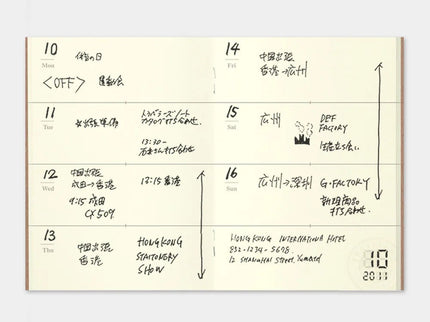 10
Mon
体育の日
<OFF> 運動会
11
Tue
出張準備
トラベラーズノート
カタログ打ち合わせ.
13:30-
打ち合わせ
12
Wed
中国出張
成田→香港
9:15 成田
CX509
13:15 香港
13
Thu
中国出張
香港
HONGKONG
STATIONERY
SHOW
14
Fri
中国出張
香港→広州
15
Sat
広州
DEF
FACTORY
16
Sun
広州→深圳
G.FACTORY
新規商品
打ち合わせ.
HONG KONG INTERNATIONAL HOTEL
852-1234-5678.
12 SHANGHAI STREET, Yaumatei
10
2011